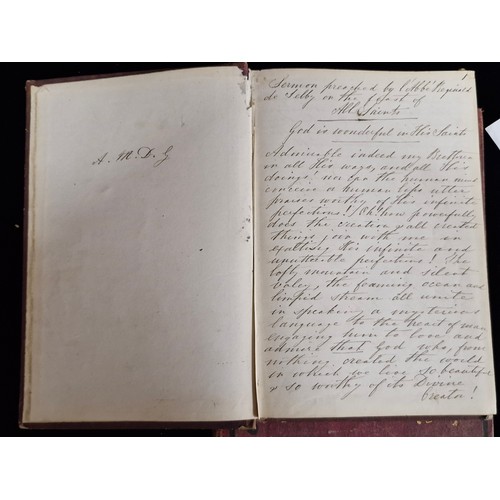 A. M. D. G
1
Sermon preached by l'Abbé
de Selby on the feast of
All Saints
God is wonderful in His Saints
Admirable indeed my Brethren
in all His ways, and all His
doings! nor can the human mind
conceive a human lips utter
praises worthy of His infinite
perfections! Oh! how powerfully
does the creation & all created
things join with me in
His infinite and
unutterable perfections! The
lofty mountain and silent
valley, the foaming ocean and
limpid stream all unite
in speaking a mysterious
language to the heart of man,
engaging him to love and
admire that God who, from
nothing created the world
in which we live so beautiful
& so worthy of its Divine
Creator!